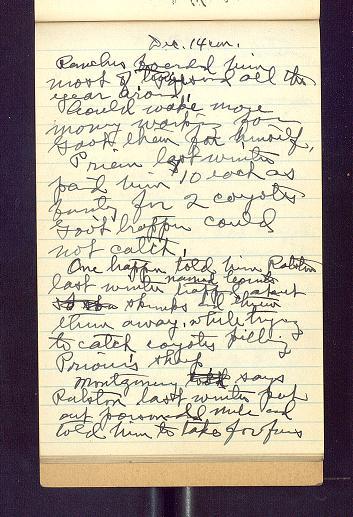 Dec. 14 con.
Ranchers boarded him
most of all the
year around.
Could make more
money working for
Govt than for himself.
last winter
paid him $10 each as
bounty for 2 coyotes
Govt trapper could
not catch.
One trapper told him Ralston
last winter trapped about
skunks & threw
them away, while trying
to catch coyotes killing
sheep
Montgomery says
Ralston last winter put
out poisoned mule and
told him to take for furs